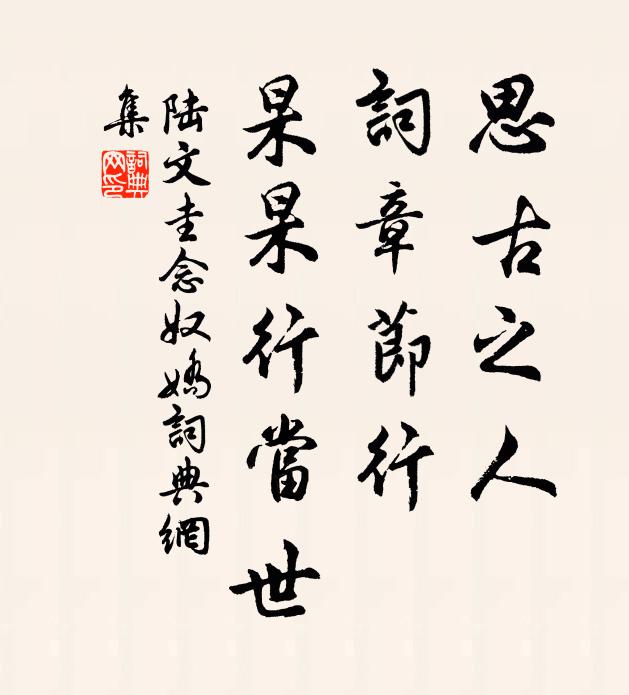 思古之人
詞章節行
杲杲行當世
陸文圭念奴嬌詞典網
集
詞典網印